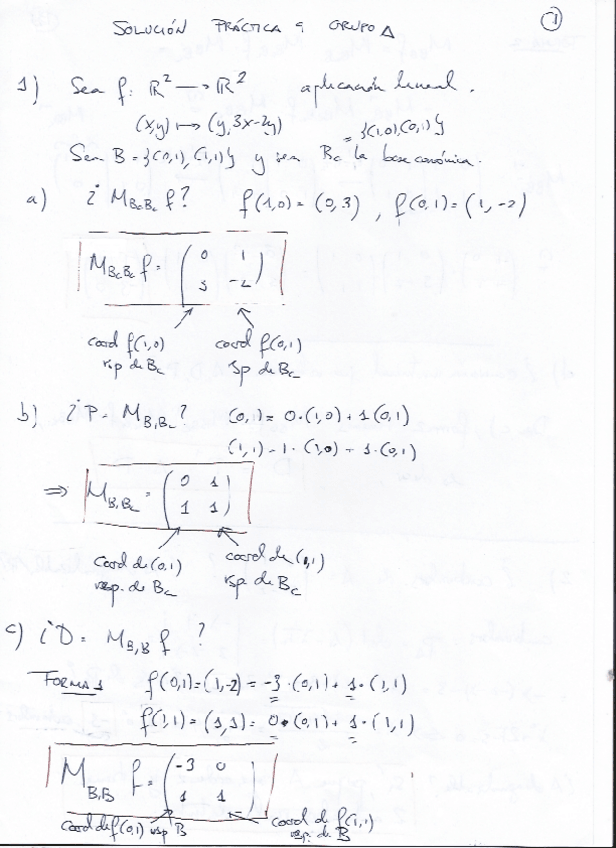 SOLUCIÓN PRÁCTICA 9 GRUPO A
1
1) Sea f: ℝ² → ℝ² aplicación lineal.
(x,y) ↦ (y, 3x-2y)
= {(1,0),(0,1)}
Sea B = {(0,1), (1,1)} y sea Bc la base canónica.
a) ¿ M_BcBc f? f(1,0) = (0,3), f(0,1) = (1,-2)
M_BcBc f = ( 0 1
3 -2 )
coord f(1,0) coord f(0,1)
rsp de Bc rsp de Bc
b) ¿P = M_B,Bc? (0,1) = 0·(1,0) + 1(0,1)
(1,1) = 1·(1,0) + 1·(0,1)
⇒ M_B,Bc = ( 0 1
1 1 )
coord de (0,1) coord de (1,1)
resp. de Bc rsp de Bc
c) ¿D = M_B,B f ?
FORMA 1 f(0,1) = (1,-2) = -3·(0,1) + 1·(1,1)
f(1,1) = (1,1) = 0·(0,1) + 1·(1,1)
M_B,B f = ( -3 0
1 1 )
coord de f(0,1) resp B coord de f(1,1)
resp. de B